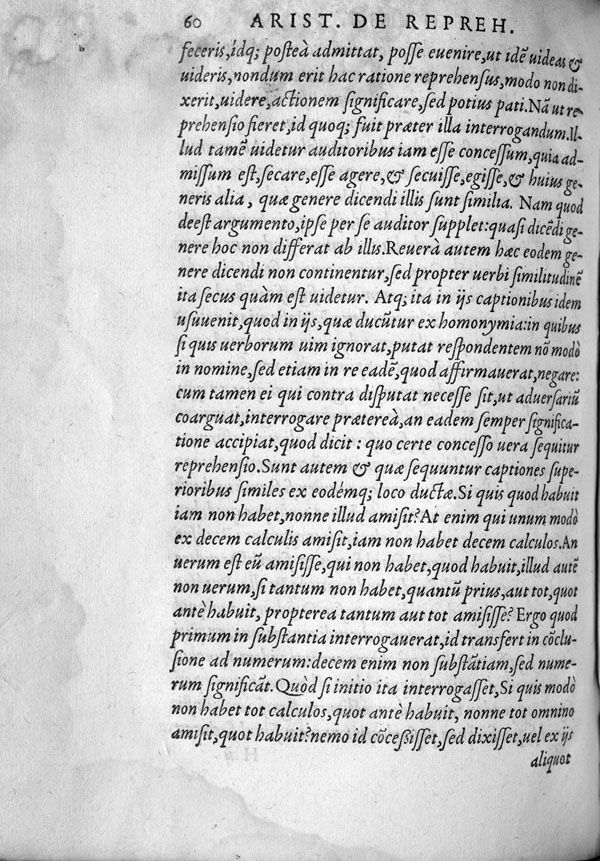 60 ARIST. DE REPREH.
feceris, idq; posteà admittat, posse euenire, ut idẽ uideas &
uideris, nondum erit hac ratione reprehensus, modo non di-
xerit, uidere, actionem significare, sed potius pati. Nã ut re-
prehensio fieret, id quoq; fuit præter illa interrogandum. Il-
lud tamẽ uidetur auditoribus iam esse concessum, quia ad-
missum est, secare, esse agere, & secuisse, egisse, & huius ge-
neris alia, quæ genere dicendi illis sunt similia. Nam quod
deest argumento, ipse per se auditor supplet: quasi dicẽdi ge-
nere hoc non differat ab illis. Reuerà autem hæc eodem ge-
nere dicendi non continentur, sed propter uerbi similitudinẽ
ita secus quàm est uidetur. Atq; ita in ijs captionibus idem
usuuenit, quod in ijs, quæ ducũtur ex homonymia: in quibus
si quis uerborum uim ignorat, putat respondentem nõ modò
in nomine, sed etiam in re eadẽ, quod affirmauerat, negare:
cum tamen ei qui contra disputat necesse sit, ut aduersariũ
coarguat, interrogare prætereà, an eadem semper significa-
tione accipiat, quod dicit : quo certe concesso uera sequitur
reprehensio. Sunt autem & quæ sequuntur captiones supe-
rioribus similes ex eodémq; loco ductæ. Si quis quod habuit
iam non habet, nonne illud amisit? At enim qui unum modò
ex decem calculis amisit, iam non habet decem calculos. An
uerum est eũ amisisse, qui non habet, quod habuit, illud autẽ
non uerum, si tantum non habet, quantũ prius, aut tot, quot
antè habuit, propterea tantum aut tot amisisse? Ergo quod
primum in substantia interrogauerat, id transfert in cõclu-
sione ad numerum: decem enim non substãtiam, sed nume-
rum significãt. Quòd si initio ita interrogasset, Si quis modò
non habet tot calculos, quot antè habuit, nonne tot omnino
amisit, quot habuit? nemo id cõcesisset, sed dixisset, uel ex ijs
aliquot